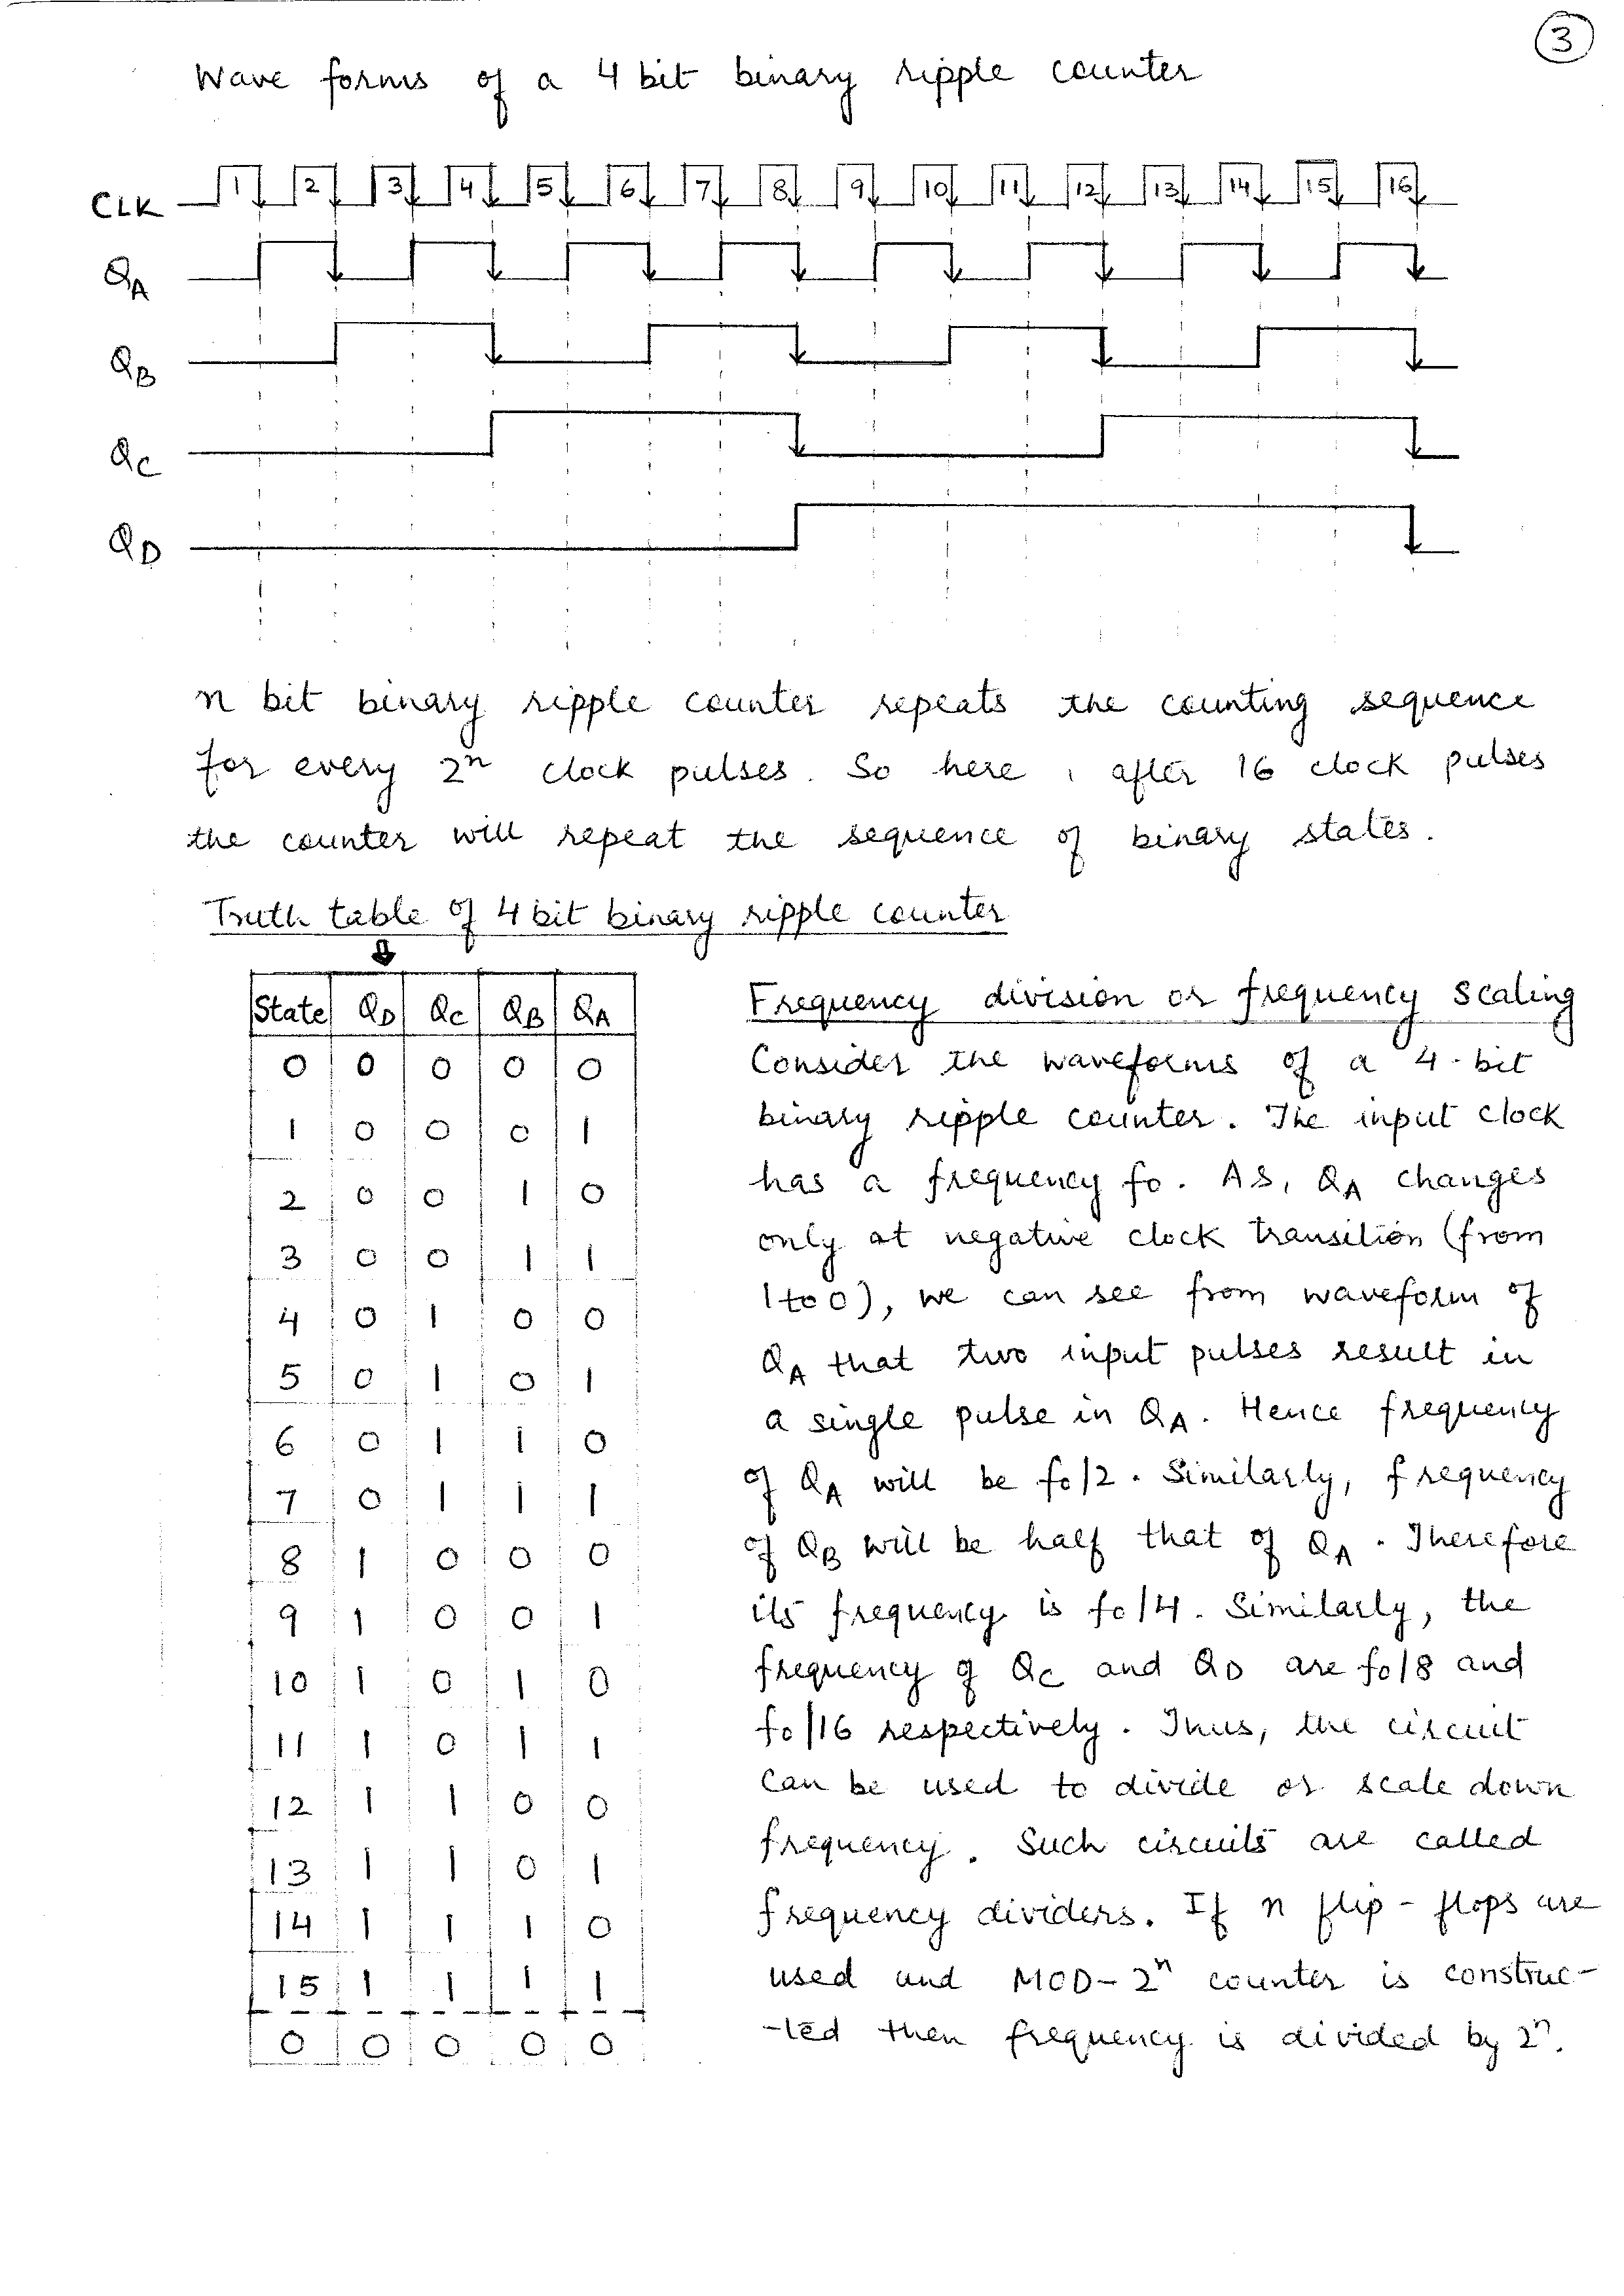 3
Wave forms of a 4 bit binary ripple counter
CLK 1 2 3 4 5 6 7 8 9 10 11 12 13 14 15 16
QA
QB
QC
QD
n bit binary ripple counter repeats the counting sequence
for every 2ⁿ clock pulses. So here, after 16 clock pulses
the counter will repeat the sequence of binary states.
Truth table of 4 bit binary ripple counter
State QD QC QB QA
0 0 0 0 0
1 0 0 0 1
2 0 0 1 0
3 0 0 1 1
4 0 1 0 0
5 0 1 0 1
6 0 1 1 0
7 0 1 1 1
8 1 0 0 0
9 1 0 0 1
10 1 0 1 0
11 1 0 1 1
12 1 1 0 0
13 1 1 0 1
14 1 1 1 0
15 1 1 1 1
0 0 0 0 0
Frequency division or frequency scaling
Consider the waveforms of a 4-bit
binary ripple counter. The input clock
has a frequency fo. As, QA changes
only at negative clock transition (from
1 to 0), we can see from waveform of
QA that two input pulses result in
a single pulse in QA. Hence frequency
of QA will be fo/2. Similarly, frequency
of QB will be half that of QA. Therefore
its frequency is fo/4. Similarly, the
frequency of QC and QD are fo/8 and
fo/16 respectively. Thus, the circuit
can be used to divide or scale down
frequency. Such circuits are called
frequency dividers. If n flip-flops are
used and MOD-2ⁿ counter is construc-
-ted then frequency is divided by 2ⁿ.